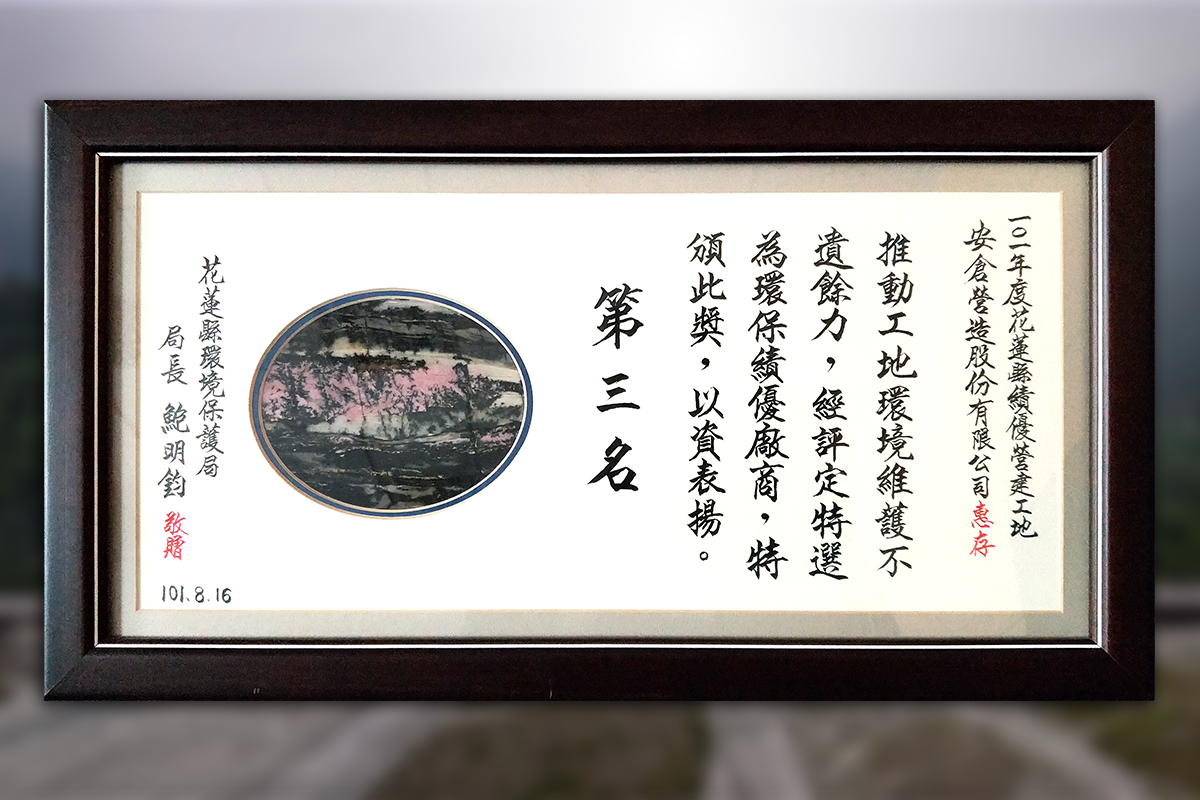 一○一年度花蓮縣績優營建工地
安倉營造股份有限公司惠存
推動工地環境維護不
遺餘力，經評定特選
為環保績優廠商，特
頒此獎，以資表揚。
第三名
花蓮縣環境保護局
局長 鮑明鈞 敬贈
101.8.16